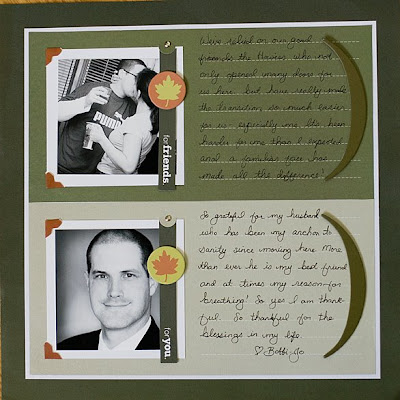 We've relied on our good
friends the Bowers who not
only opened many doors for
us here but have really made
the transition so much easier
for us. Especially me. It's been
harder for me than I expected
and a familiar face has
made all the difference!
PUMA
for friends.
So grateful for my husband
who has been my anchor to
sanity since moving here. More
than ever he is my best friend
and at times my reason for
breathing! So yes I am thank-
ful. So thankful for the
blessings in my life.
♡ Bobbi Jo
for you.